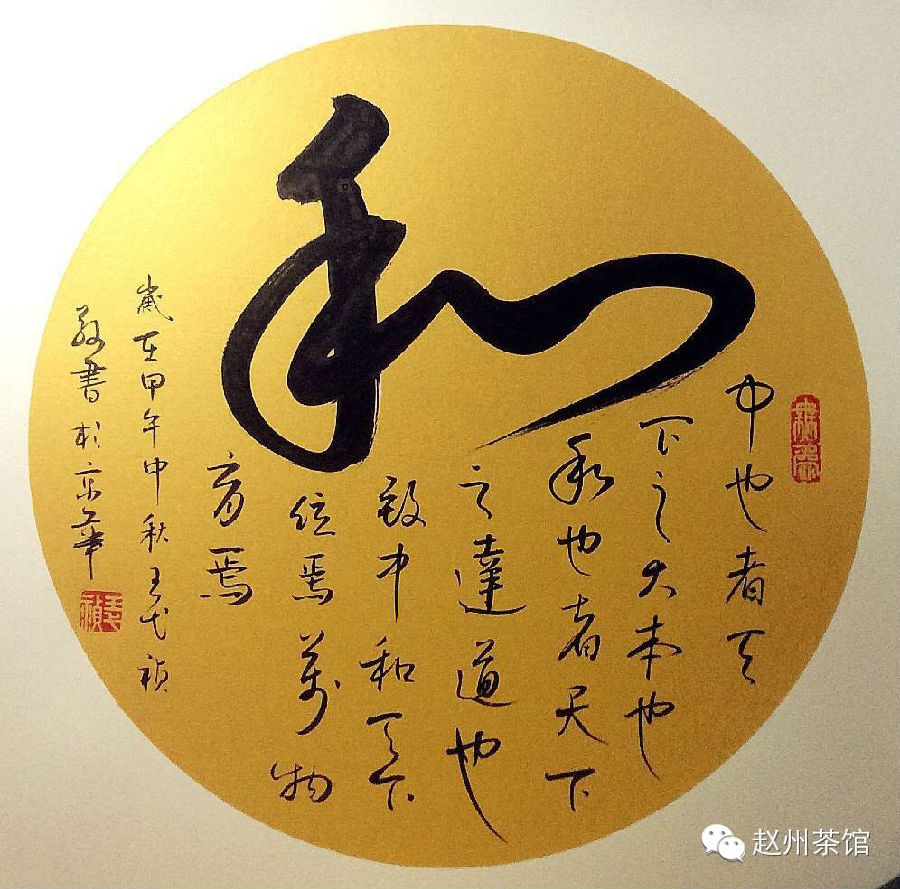 和
中也者天
下之大本也
和也者天下
之達道也
致中和天下
位焉萬物
育焉
歲在甲午中秋王弋禎
敬書於京華
赵州茶馆